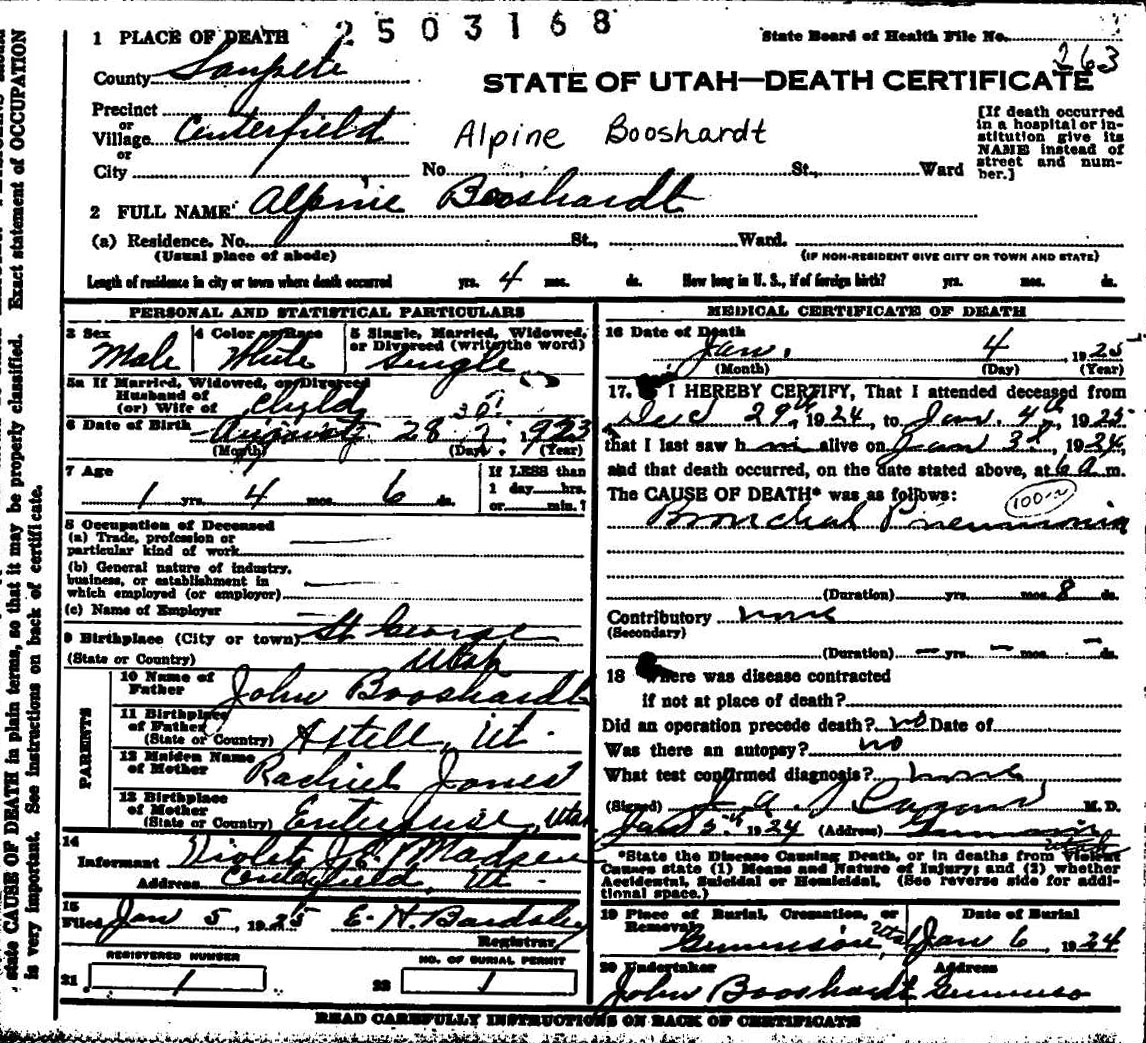 2503168
State Board of Health File No.
263
1 PLACE OF DEATH
County Sanpete
STATE OF UTAH—DEATH CERTIFICATE
Precinct
or
Village Centerfield
or
City
Alpine Booshardt
No. St., Ward
[If death occurred
in a hospital or in-
stitution give its
NAME instead of
street and num-
ber.]
2 FULL NAME Alpine Booshardt
(a) Residence. No. St., Ward.
(Usual place of abode)
(IF NON-RESIDENT GIVE CITY OR TOWN AND STATE)
Length of residence in city or town where death occurred yrs. 4 mos. ds. How long in U. S., if of foreign birth? yrs. mos. ds.
PERSONAL AND STATISTICAL PARTICULARS
3 Sex
Male
4 Color or Race
White
5 Single, Married, Widowed,
or Divorced (write the word)
Single
5a If Married, Widowed, or Divorced
Husband of
(or) Wife of Child
6 Date of Birth August 28 1923
(Month) (Day) (Year)
7 Age
1 yrs. 4 mos. 6 ds.
If LESS than
1 day hrs.
or min.?
8 Occupation of Deceased
(a) Trade, profession or
particular kind of work
(b) General nature of industry,
business, or establishment in
which employed (or employer)
(c) Name of Employer
9 Birthplace (City or town) St George
(State or Country) Utah
PARENTS
10 Name of
Father John Booshardt
11 Birthplace
of Father
(State or Country) Ut.
12 Maiden Name
of Mother Rachiel Jones
13 Birthplace
of Mother
(State or Country) Enterprise, Utah
14
Informant Violet Madsen
Address Centerfield, Ut.
15
Filed Jan 5, 1925 E. H. Bardsley
Registrar
REGISTERED NUMBER
21 1
NO. OF BURIAL PERMIT
22 1
MEDICAL CERTIFICATE OF DEATH
16 Date of Death
Jan. 4, 1925
(Month) (Day) (Year)
17. I HEREBY CERTIFY, That I attended deceased from
Dec 29th, 1924, to Jan. 4th 1925
that I last saw h im alive on Jan 3d, 1924,
and that death occurred, on the date stated above, at 6 a m.
The CAUSE OF DEATH* was as follows:
Bronchial Pneumonia
(Duration) yrs. mos. 8 ds.
Contributory none
(Secondary)
(Duration) — yrs — mos. — ds.
18 Where was disease contracted
if not at place of death?
Did an operation precede death? no Date of
Was there an autopsy? no
What test confirmed diagnosis? none
(Signed) M. D.
Jan 5th 1924 (Address) Gunnison
Utah
*State the Disease Causing Death, or in deaths from Violent
Causes state (1) Means and Nature of Injury; and (2) whether
Accidental, Suicidal or Homicidal. (See reverse side for addi-
tional space.)
19 Place of Burial, Cremation, or
Removal Gunnison, Utah
Date of Burial
Jan 6, 1924
20 Undertaker
John Booshardt
Address
READ CAREFULLY INSTRUCTIONS ON BACK OF CERTIFICATE
state CAUSE OF DEATH in plain terms, so that it may be properly classified. Exact statement of OCCUPATION
is very important. See instructions on back of certificate.